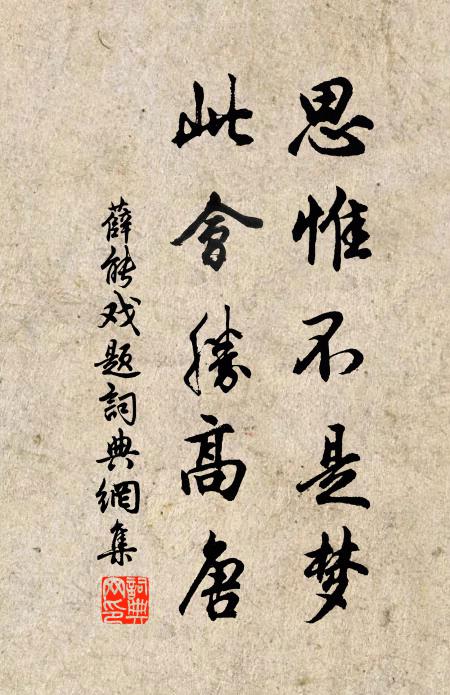 思惟不是梦
此會勝高唐
薛能戏题詞典網集
詞典网印